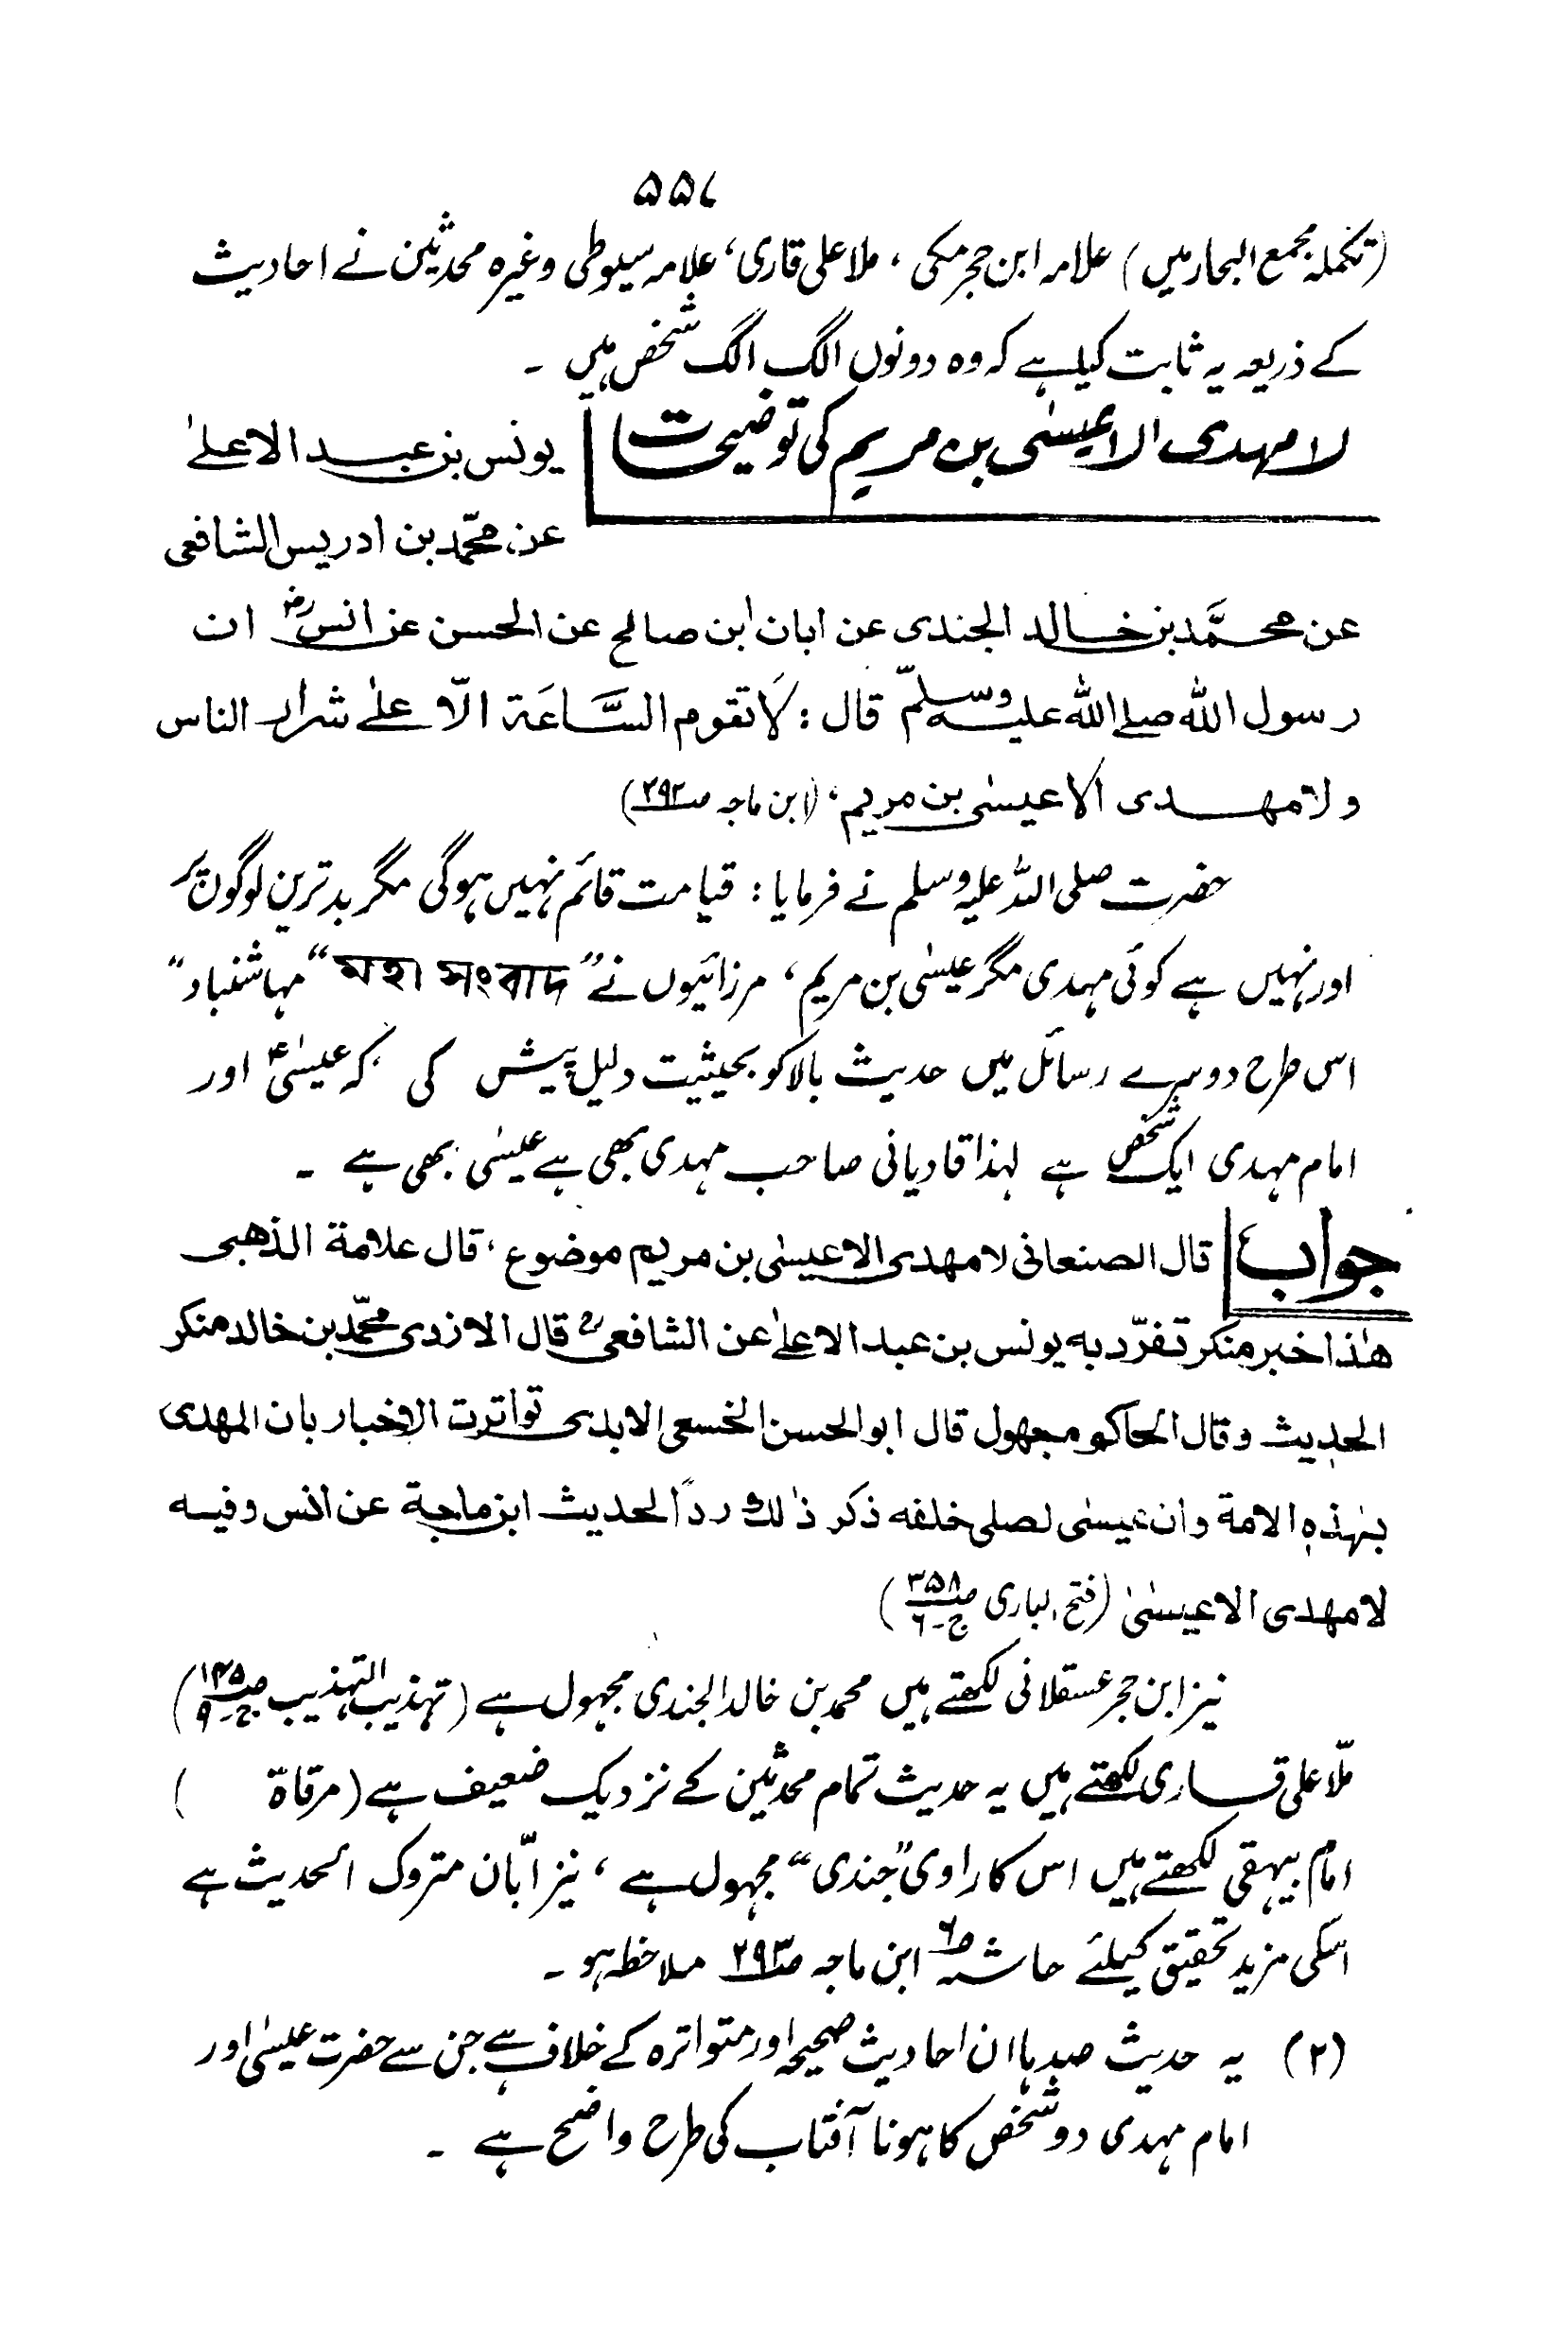 ۵۵۷
(تکملہ مجمع البحار میں) علامہ ابن حجر مکی، ملا علی قاری، علامہ سیوطی وغیرہ محدثین نے احادیث
کے ذریعہ یہ ثابت کیا ہے کہ وہ دونوں الگ الگ شخص ہیں ۔
لا مهدی الا عیسٰی بن مریم کی توضیحات
یونس بن عبد الاعلیٰ
عن محمّد بن ادریس الشافعی
عن محمَّد بن خالد الجندی عن ابان ابن صالح عن الحسن عن انسؓ ان
رسول الله صلے الله علیہ وسلمّ قال : لَا تقوم السَّاعَة الّا علےٰ شرار الناس
و لا مهدی الا عیسٰی بن مریم، (ابن ماجہ صـ۲۹۲)
حضرت صلی اللہ علیہ وسلم نے فرمایا : قیامت قائم نہیں ہوگی مگر بدترین لوگوں پر
اور نہیں ہے کوئی مہدی مگر عیسٰی بن مریم، مرزائیوں نے "মহা সংবাদ" "مہا شنباد"
اس طرح دوسرے رسائل میں حدیث بالا کو بحیثیت دلیل پیش کی کہ عیسٰیؑ اور
امام مہدی ایک شخص ہے لہذا قادیانی صاحب مہدی بھی ہے عیسٰی بھی ہے ۔
جواب
قال الصنعانی لا مهدی الا عیسٰی بن مریم موضوع، قال علامة الذهبی
هٰذا خبر منکر تفرّد به یونس بن عبد الاعلیٰ عن الشافعیؒ قال الازدی محمّد بن خالد منکر
الحدیث وقال الحاکم مجهول قال ابو الحسن الخسعی الابدی تواترت الاخبار بان المهدی
بهٰذہ الامة وان عیسٰی لصلی خلفه ذکر ذٰلک ردًا لحدیث ابن ماجة عن انس وفیه
لا مهدی الا عیسٰی (فتح الباری صـ۳۵۸ ج-۶)
نیز ابن حجر عسقلانی لکھتے ہیں محمد بن خالد الجندی مجہول ہے (تہذیب التہذیب صـ۱۲۵ ج-۹)
ملّا علی قاری لکھتے ہیں یہ حدیث تمام محدثین کے نزدیک ضعیف ہے (مرقاة )
امام بیہقی لکھتے ہیں اس کا راوی "جندی" مجہول ہے، نیز ابّان متروک الحدیث ہے
اسکی مزید تحقیق کیلئے حاشیہ صـ۶ ابن ماجہ صـ۲۹۳ ملاحظہ ہو ۔
(۲) یہ حدیث صدہا ان احادیث صحیحہ اور متواترہ کے خلاف ہے جن سے حضرت عیسٰی اور
امام مہدی دو شخص کا ہونا آفتاب کی طرح واضح ہے ۔